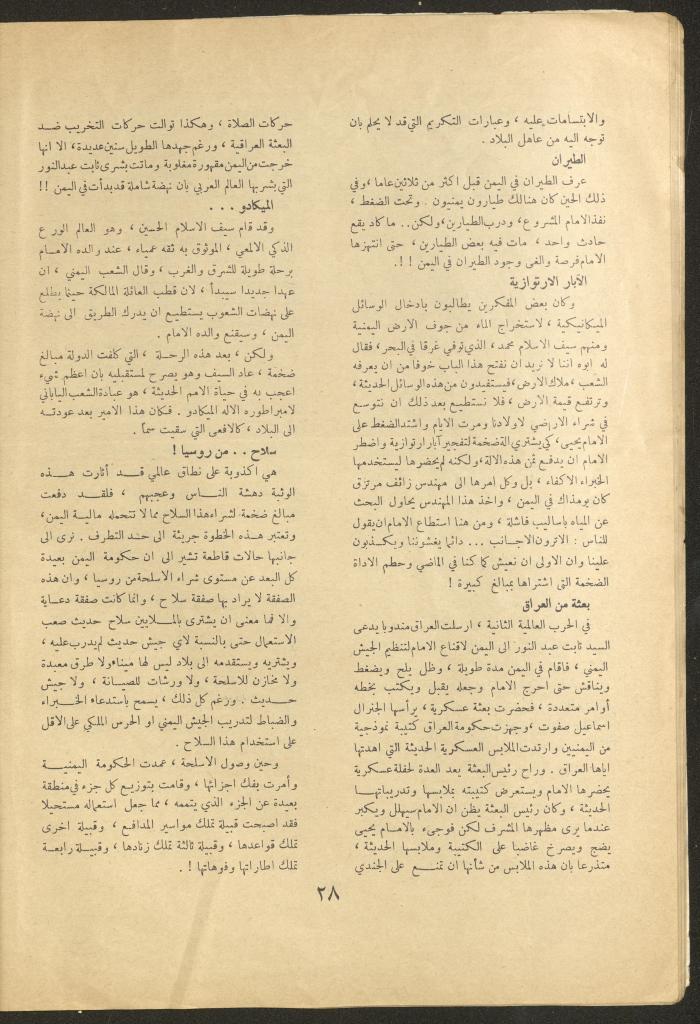 والابتسامات عليه ، وعبارات التكريم التي قد لا يحلم بان
توجه اليه من عاهل البلاد .
الطيران
عرف الطيران في اليمن قبل اكثر من ثلاثين عاما ، وفي
ذلك الحين كان هنالك طيارون يمنيون . وتحت الضغط ،
نفذ الامام المشروع ، ودرب الطيارين ، ولكن .. ما كاد يقع
حادث واحد ، مات فيه بعض الطيارين ، حتى انتهزها
الامام فرصة والغى وجود الطيران في اليمن ! ! .
الآبار الارتوازية
وكان بعض المفكرين يطالبون بادخال الوسائل
الميكانيكية ، لاستخراج الماء من جوف الارض اليمنية
ومنهم سيف الاسلام محمد ، الذي توفي غرقا في البحر ، فقال
له ابوه اننا لا نريد ان نفتح هذا الباب خوفا من ان يعرفه
الشعب ، ملاك الارض ، فيستفيدون من هذه الوسائل الحديثة ،
وترتفع قيمة الارض ، فلا نستطيع بعد ذلك ان نتوسع
في شراء الاراضي لاولادنا ومرت الايام واشتد الضغط على
الامام يحيى ، كي يشتري آلة ضخمة لتفجير آبار ارتوازية واضطر
الامام ان يدفع ثمن هذه الآلة ، ولكنه لم يحضرها ليستخدمها
الخبراء الاكفاء ، بل وكل امرها الى مهندس زائف مرتزق
كان يومذاك في اليمن ، واخذ هذا المهندس يحاول البحث
عن المياه باساليب فاشلة ، ومن هنا استطاع الامام ان يقول
للناس : الاترون الاجانب ... دائما يغشوننا ويكذبون
علينا وان الاولى ان نعيش كما كنا في الماضي وحطم الاداة
الضخمة التي اشتراها بمبالغ كبيرة !
بعثة من العراق
في الحرب العالمية الثانية ، ارسلت العراق مندوبا يدعى
السيد ثابت عبد النور الى اليمن لاقناع الامام لتنظيم الجيش
اليمني ، فاقام في اليمن مدة طويلة ، وظل يلح ويضغط
ويناقش حتى احرج الامام وجعله يقبل ويكتب بخطه
أوامر متعددة ، فحضرت بعثة عسكرية ، يرأسها الجنرال
اسماعيل صفوت ، وجهزت حكومة العراق كتيبة نموذجية
من اليمنيين وارتدت الملابس العسكرية الحديثة التي اهدتها
اياها العراق . وراح رئيس البعثة يعد العدة لحفلة عسكرية
يحضرها الامام ويستعرض كتيبته بملابسها وتدريباتها
الحديثة ، وكان رئيس البعثة يظن ان الامام سيهلل ويكبر
عندما يرى مظهرها المشرف لكن فوجىء بالامام يحيى
يضج ويصرخ غاضبا على الكتيبة وملابسها الحديثة ،
متذرعا بان هذه الملابس من شأنها ان تمنع على الجندي
حركات الصلاة ، وهكذا توالت حركات التخريب ضد
البعثة العراقية ، ورغم جهدها الطويل سنين عديدة ، الا انها
خرجت من اليمن مقهورة مغلوبة وماتت بشرى ثابت عبد النور
التي بشر بها العالم العربي بان نهضة شاملة قد بدأت في اليمن !!
الميكادو ...
وقد قام سيف الاسلام الحسين ، وهو العالم الورع
الذكي الالمعي ، الموثوق به ثقه عمياء ، عند والده الامام
برحلة طويلة للشرق والغرب ، وقال الشعب اليمني ، ان
عهدا جديدا سيبدأ ، لان قطب العائلة المالكة حينما يطلع
على نهضات الشعوب يستطيع ان يدرك الطريق الى نهضة
اليمن ، وسيقنع والده الامام .
ولكن ، بعد هذه الرحلة ، التي كلفت الدولة مبالغ
ضخمة ، عاد السيف وهو يصرح لمستقبليه بان اعظم شيء
اعجب به في حياة الامم الحديثة ، هو عبادة الشعب الياباني
لامبراطوره الاله الميكادو . فكان هذا الامير بعد عودته
الى البلاد ، كالافعى التي سقيت سماً .
سلاح .. من روسيا !
هي اكذوبة على نطاق عالمي قد أثارت هذه
الوثبة دهشة الناس وعجبهم ، فلقد دفعت
مبالغ ضخمة لشراء هذا السلاح مما لا تتحمله مالية اليمن ،
وتعتبر هذه الخطوة جريئة الى حد التطرف . نرى الى
جانبها حالات قاطعة تشير الى ان حكومة اليمن بعيدة
كل البعد عن مستوى شراء الاسلحة من روسيا ، وان هذه
الصفقة لا يراد بها صفقة سلاح ، وانما كانت صفقة دعاية
والا فما معنى ان يشترى بالملايين سلاح حديث صعب
الاستعمال حتى بالنسبة لاي جيش حديث لم يدرب عليه ،
ويشتريه ويستقدمه الى بلاد ليس لها ميناء ولا طرق معبدة
ولا مخازن للاسلحة ، ولا ورشات للصيانة ، ولا جيش
حديث . ورغم كل ذلك ، يسمح باستدعاء الخبراء
والضباط لتدريب الجيش اليمني او الحرس الملكي على الاقل
على استخدام هذا السلاح .
وحين وصول الاسلحة ، عمدت الحكومة اليمنية
وأمرت بفك اجزائها ، وقامت بتوزيع كل جزء في منطقة
بعيدة عن الجزء الذي يتممه ، مما جعل استعماله مستحيلا
فقد اصبحت قبيلة تملك مواسير المدافع ، وقبيلة اخرى
تملك قواعدها ، وقبيلة ثالثة تملك زنادها ، وقبيلة رابعة
تملك اطاراتها وفوهاتها ! .
٢٨